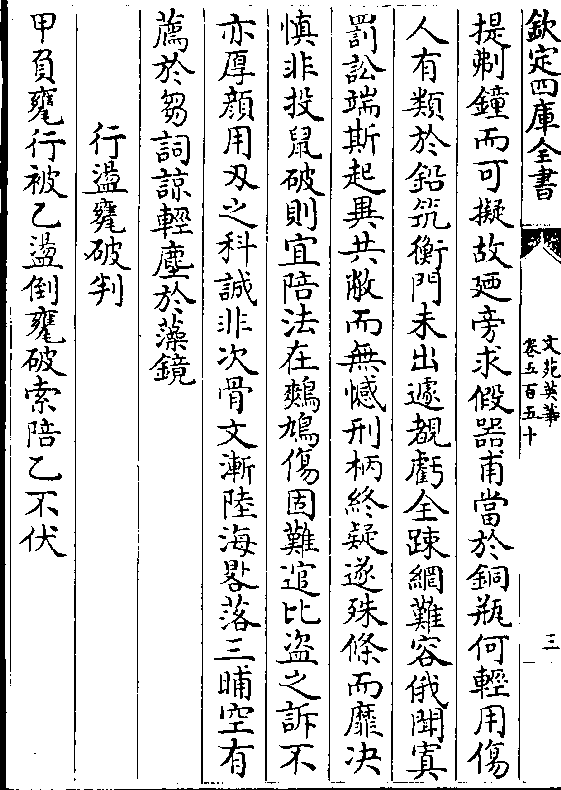 欽定四庫全書
文苑英華
卷五百五十
三
提剃鐘而可擬故廼旁求假器甫當於銅瓶何輕用傷
人有類於鉛筑衡門未出遽覩虧全踈網難容俄聞寘
罰訟端斯起異共敝而無憾刑柄終疑遂殊條而靡决
慎非投鼠破則宜陪法在鷞鳩傷固難逭比盗之訴不
亦厚顔用刃之科誠非次骨文漸陸海畧落三晡空有
薦於芻詞諒輕塵於藻鏡
行盪甕破判
甲負甕行被乙盪倒甕破索陪乙不伏